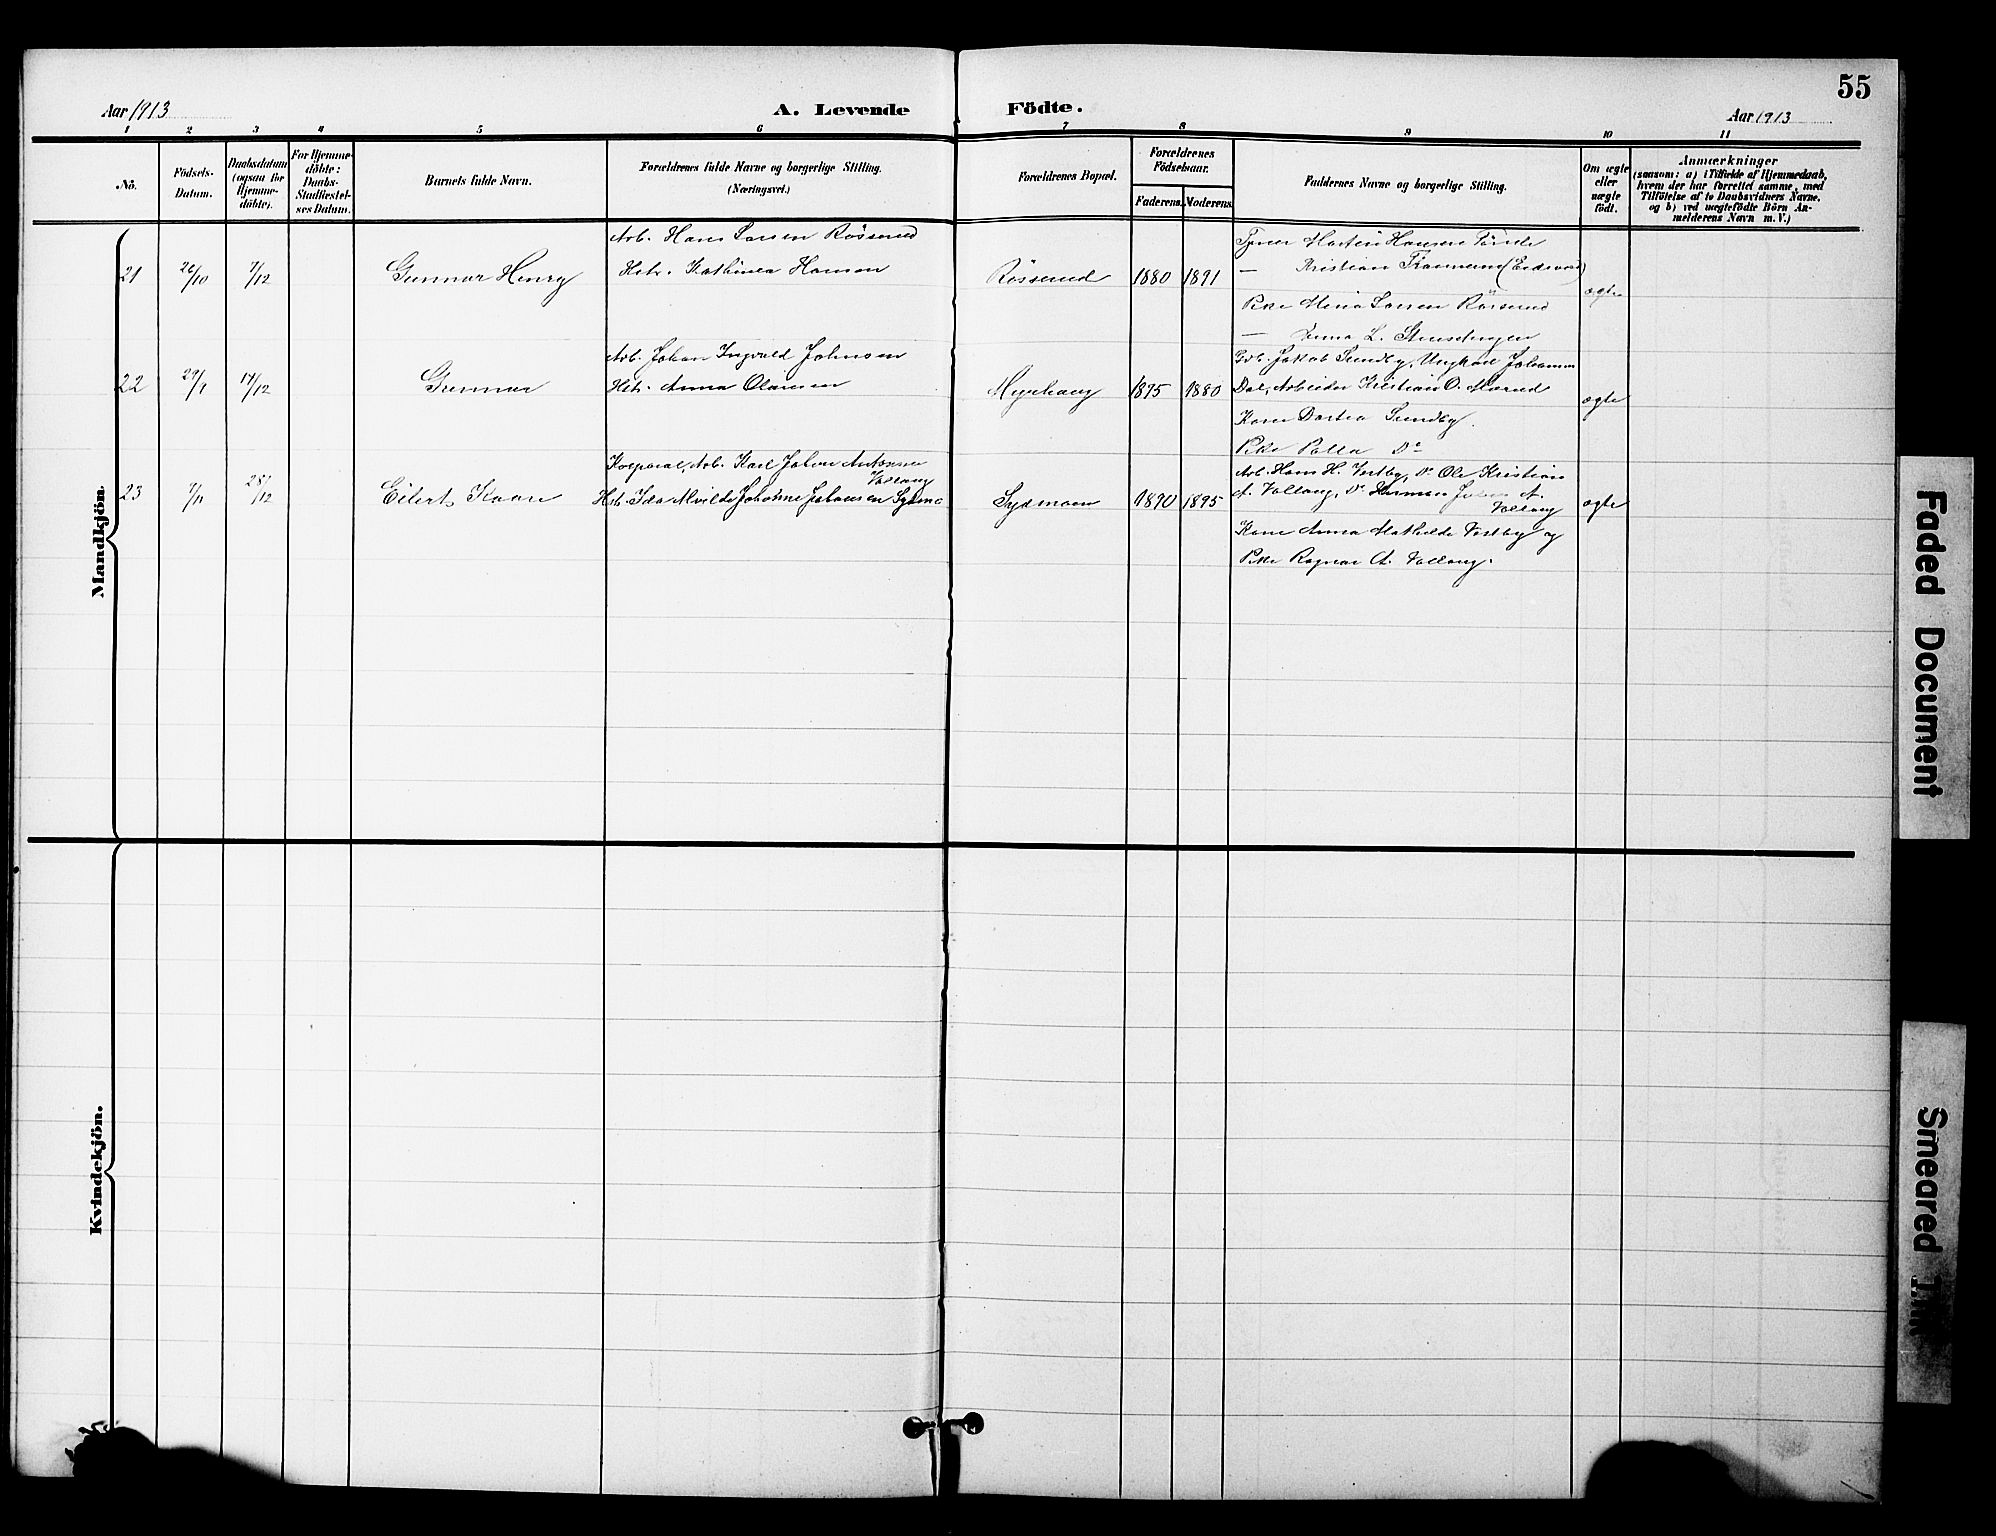 55
Aar 1913
A. Levende Födte.
Aar 1913
1 2 3 4 5 6 7 8 9 10 11
No.
Födsels-
Datum.
Daabsdatum
(ogsaa for
Hjemme-
döbte).
For Hjemme-
döbte:
Daabs-
Stadfæstel-
ses Datum.
Barnets fulde Navn.
Forældrenes fulde Navne og borgerlige Stilling.
(Næringsvei.)
Forældrenes Bopæl.
Forældrenes
Födselsaar.
Faderens. Moderens.
Faddernes Navne og borgerlige Stilling.
Om ægte
eller
uægte
født.
Anmærkninger
(saasom: a) i Tilfælde af Hjemmedaab,
hvem der har forrettet samme, med
Tilföielse af to Daabsvidners Navne,
og b) ved uægtefödte Börn An-
melderens Navn m. V.)
Mandkjön.
21 26/10 7/12 Gunnar Henry
Arb. Hans Larsen Røsserud
Hstr. Kathinea Hansen
Røsserud 1880 1891
Martin Hansen
— Kristian
Pike Mina Larsen Røsserud
— L.
ægte
22 14/12 Gunnar
Arb. Johan Ingvald Johnsen
Hstr. Anna Olaussen
Myrhaug 1895 1880
Jakob Sundby, Ungkarl Johannes
Dal, Arbeider Kristian O.
Kone Dortea Sundby.
Pike Do
ægte
23 28/12 Eilert Kaare
Korporal, Arb. Karl Johan Antonsen
Vollaug
Hstr. Ida Alvilde Johanne Johansen
1890 1895
Arb. Hans H. Vestby, Do Ole Kristian
A. Vollaug, Do Herman Johan A.
Vollaug
Kone Anna Mathilde Vestby og
Pike Ragna A. Vollaug.
ægte
Kvindekjön.
Faded Document
Smeared Ink